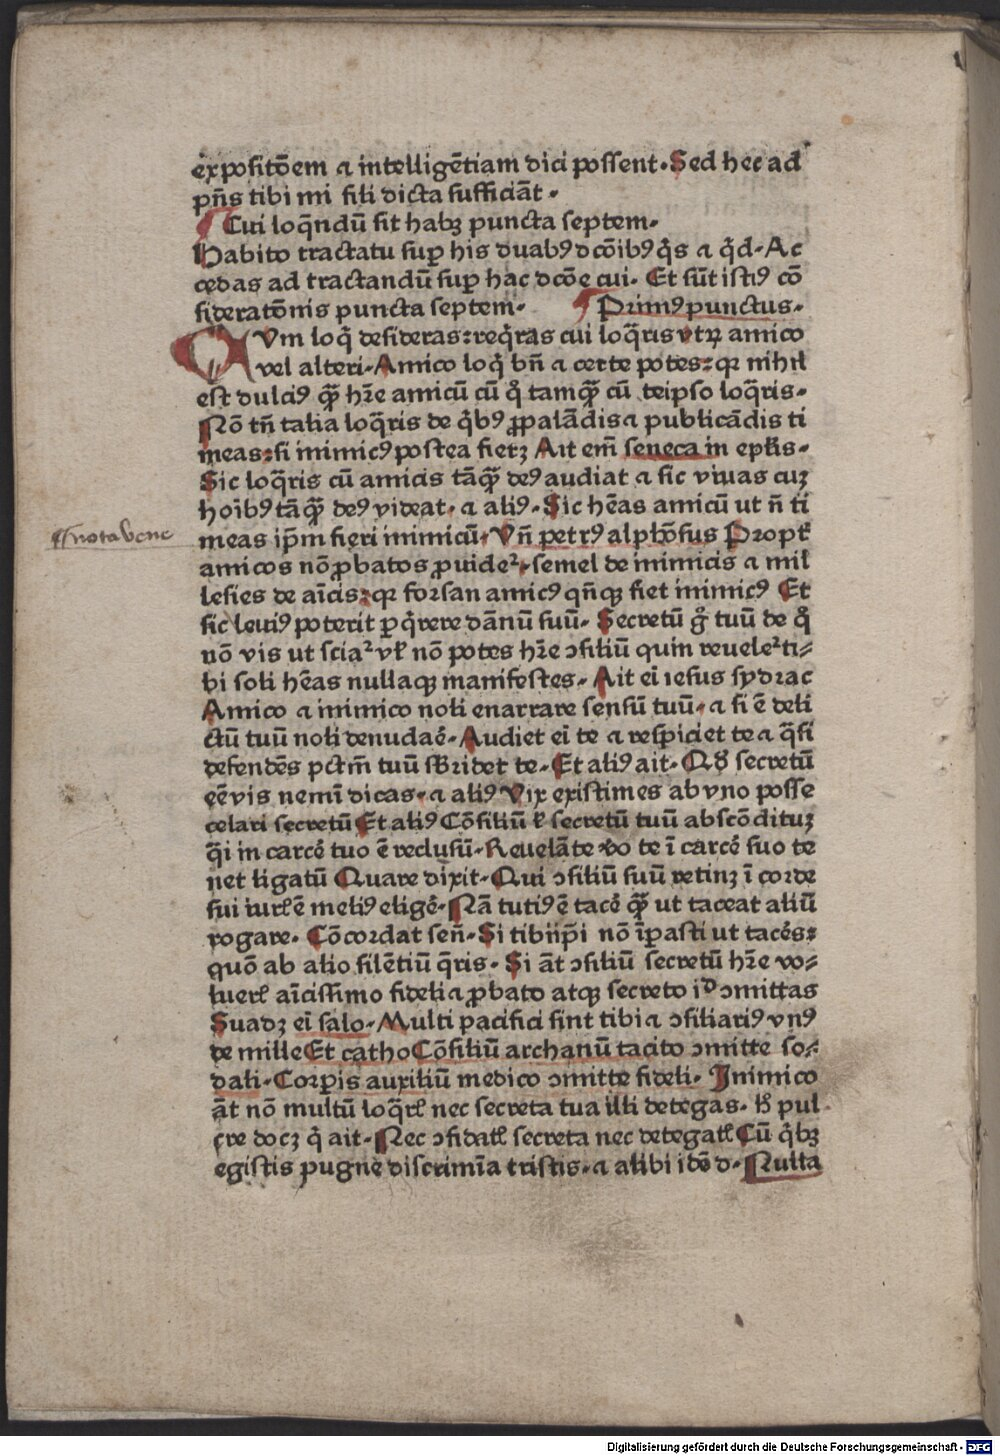 expositōem ⁊ intelligētiam dici possent. Sed hec ad
pn̄s tibi mi fili dicta sufficiāt.
¶ Cui loq̄ndū sit habꝫ puncta septem.
Habito tractatu sup̄ his duabꝰ dcōibꝰ q̇s ⁊ q̇d. Ac
cedas ad tractandū sup̄ hac dcōe cui. Et sūt istiꝰ cō
sideratōnis puncta septem. ¶ Primꝰ punctus.
QUm loq̇ desideras: req̇ras cui loq̄ris vtꝝ amico
vel alteri. Amico loq̇ bn̄ ⁊ certe potes: qꝛ nihil
est dulciꝰ qꝫ̄ hr̄e amicū cū q̊ tamqꝫ̄ cū teipso loq̄ris.
Nō tn̄ talia loq̄ris de q̇bꝰ ꝓpalādis ⁊ publicādis ti
meas: si inimicꝰ postea fietꝫ Ait em̄ seneca in epl̄is.
Sic loq̄ris cū amicis tāqꝫ̄ deꝰ audiat ⁊ sic viuas cuꝫ
hoībꝰ tāqꝫ̄ deꝰ videat. ⁊ aliꝰ. Sic hēas amicū ut n̄ ti
meas ip̄m fieri inimicū. Vn̄ petrꝰ alphōsus Propt̄
¶ nota bene
amicos nō ꝓbatos ꝓuideꝛ. semel de inimicis ⁊ mil
lesies de aīcis: qꝛ forsan amicꝰ qn̄qꝫ fiet inimicꝰ Et
sic leuiꝰ poterit ꝑq̇rere dānū suū. Secretū g̊ tuū de q̊
nō vis ut sciaꝛ vl̄ nō potes hr̄e ꝯsiliū quin reueleꝛ ti⸗
bi soli hēas nullaqꝫ manifestes. Ait ei iesus sydrac
Amico ⁊ inimico noli enarrare sensū tuū. ⁊ si ē deli
ctū tuū noli denudaē. Audiet ei te ⁊ respiciet te ⁊ q̄si
defendēs pctm̄ tuū sb̄ridet te. Et aliꝰ ait. Qd̄ secretū
eē vis nemī dicas. ⁊ aliꝰ Vix existimes ab vno posse
celari secretū Et aliꝰ Cōsiliū l̄ secretū tuū abscōdituꝫ
q̄i in carcē tuo ē reclusū. Reuelāte v̊o te ī carcē suo te
net ligatū Quare dixit. Qui ꝯsiliū suū retinꝫ ī corde
sui iurl̄ ē meliꝰ eligē. Nā tutiꝰ ē tacē qꝫ̄ ut taceat aliū
rogare. Cōcordat sen̄. Si tibiip̄i nō īpasti ut tacēs:
quō ab alio silētiū q̄ris. Si āt ꝯsiliū secretū hr̄e vo⸗
luerl̄ aīcissimo fideli ⁊ ꝓbato atqꝫ secreto id ꝯmittas
Suadꝫ ei salo. Multi pacifici sint tibi ⁊ ꝯsiliariꝰ vnꝰ
de mille Et catho Cōsiliū archanū tacito ꝯmitte so⸗
dali. Corpis auxiliū medico ꝯmitte fideli. Inimico
āt nō multū loq̄rl̄ nec secreta tua illi detegas. hͦ pul
cre docꝫ q̇ ait. Nec ꝯfidatl̄ secreta nec detegatl̄ Cū q̇bꝫ
egistis pugne discrimīa tristis. ⁊ alibi idē d. Nulla
Digitalisierung gefördert durch die Deutsche Forschungsgemeinschaft - DFG